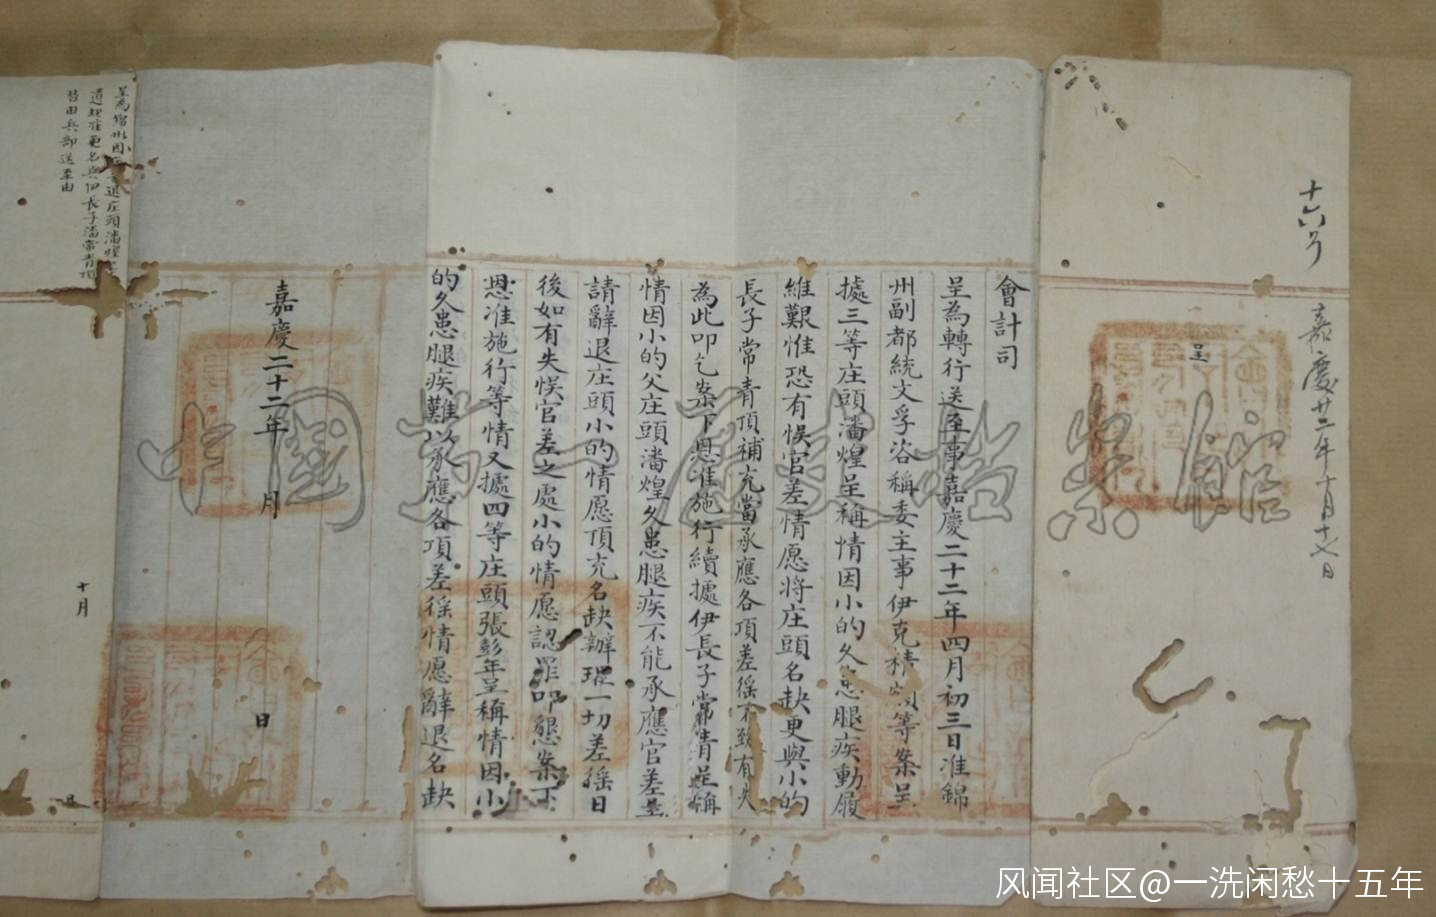 十六号
嘉慶廿二年十月十七日
呈
會計司
呈為轉行送至事嘉慶二十二年四月初三日准錦
州副都統文孚咨稱委主事伊克精額等案呈
據三等庄頭潘煌呈稱情因小的久患腿疾動履
維艱惟恐有悞官差情愿將庄頭名缺更與小的
長子常青頂補充當承應各項差徭不致有失
為此叩乞案下恩准施行續據伊長子常青呈稱
情因小的父庄頭潘煌久患腿疾不能承應官差
請辭退庄頭小的情愿頂充名缺辦理一切差徭日
後如有失悞官差之處小的情愿認罪叩懇案下
恩准施行等情又據四等庄頭張彭年呈稱情因小
的久患腿疾難以承應各項差徭情愿辭退名缺
嘉慶二十二年 月 日
呈為錦州因 退庄頭潘煌
更名與伊長子潘常青頂
皆由兵部送至由
十月
中国第一歷史檔案館
风闻社区@一洗闲愁十五年